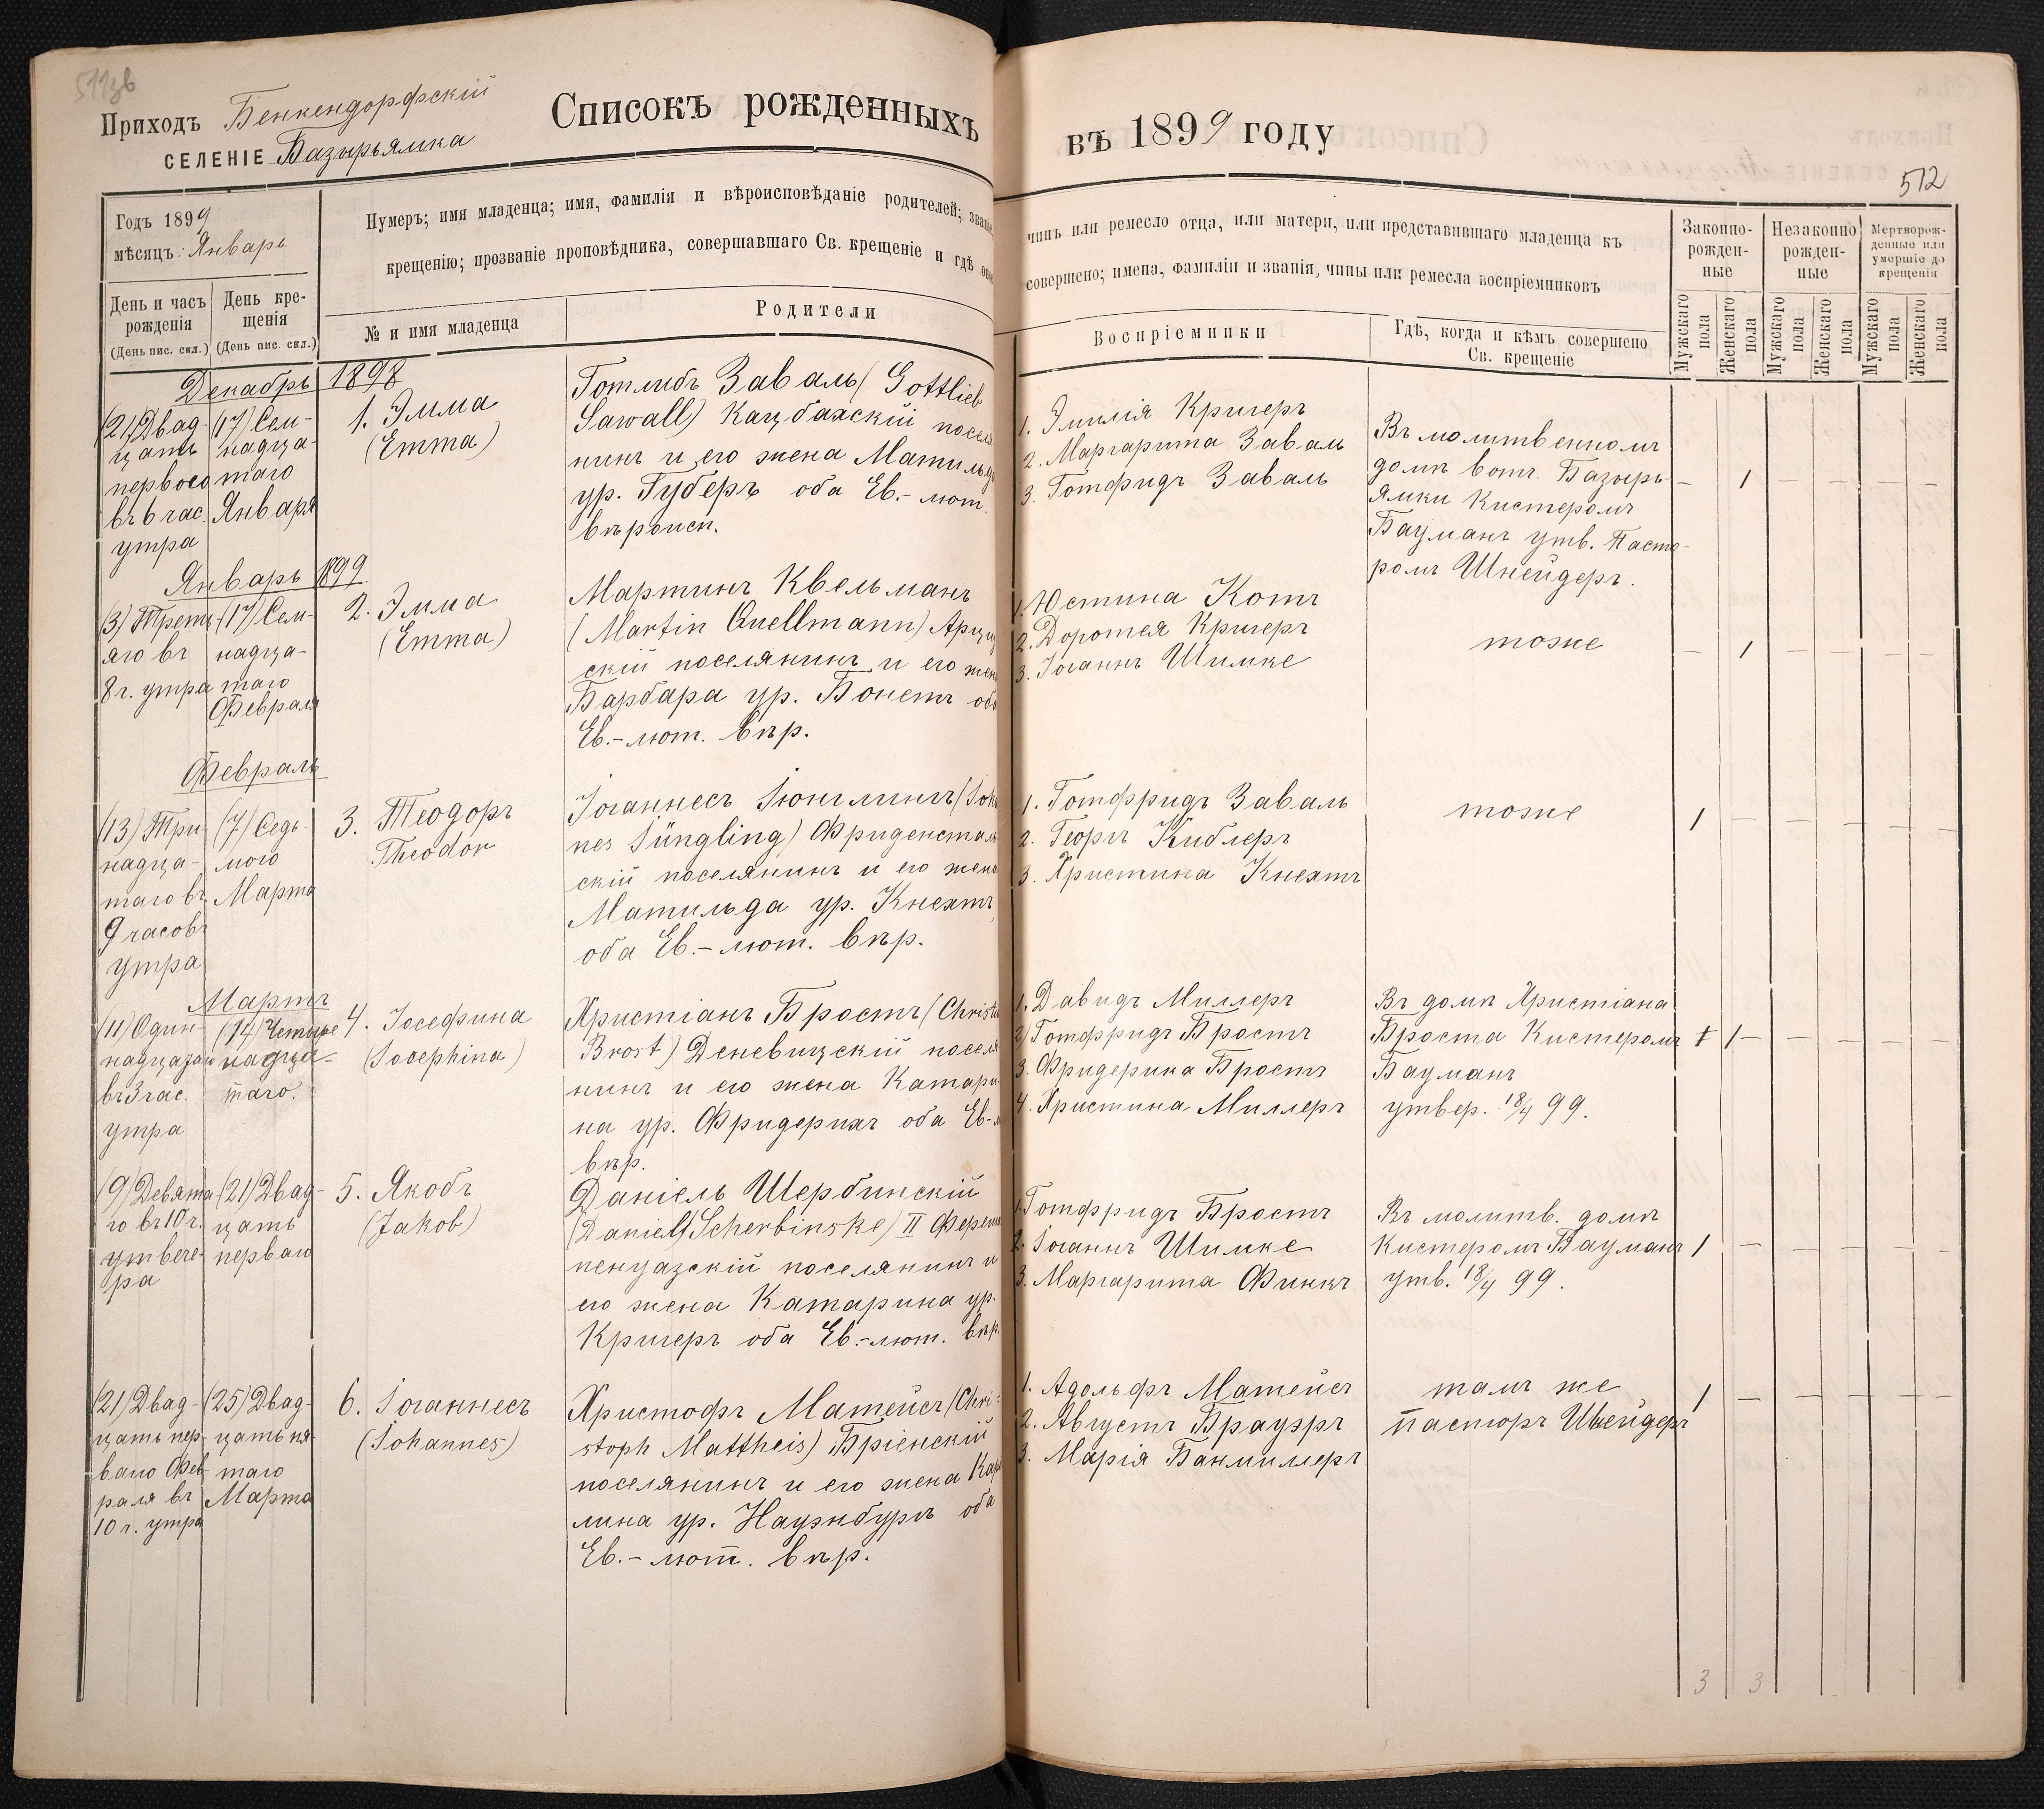 511зв
Приходъ Бенкендорфскій
СЕЛЕНІЕ Базырьямка
Списокъ рожденныхъ
въ 1899 году
512
Годъ 1899
мѣсяцъ: Январь
Нумеръ; имя младенца; имя, фамилія и вѣроисповѣданіе родителей; званіе,
крещенію; прозваніе проповѣдника, совершавшаго Св. крещеніе и гдѣ оное
День и часъ рожденія
(День пис. скл.)
День кре-
щенія
(День пис. скл.)
№ и имя младенца
Родители
чинъ или ремесло отца, или матери, или представившаго младенца къ
совершено; имена, фамиліи и званія, чины или ремесла воспріемниковъ
Воспріемники
Гдѣ, когда и кѣмъ совершено
Св. крещеніе
Законно-
рожден-
ные
Незаконно
рожден-
ные
Мертворож-
денные или
умершіе до
крещенія
Мужскаго пола
Женскаго пола
Мужскаго пола
Женскаго пола
Мужскаго пола
Женскаго пола
Декабрь 1898
(21) Двад-
цать
первого
въ 6 час.
утра
(17) Сем-
надца-
таго
Января
1. Эмма
(Emma)
Готлибъ Заваль (Gottlieb
Sawall) Кацбахскій поселя
нинъ и его жена Матильда
ур. Губеръ оба Ев.-лют.
вѣроисп.
1. Эмилія Кригеръ
2. Маргарита Заваль
3. Готфридъ Заваль
Въ молитвенномъ
домѣ вотч. Базырь-
ямки Кистеромъ
Бауманъ утв. Пасто-
ромъ Шнейдеръ.
— 1 — — — —
Январь 1899.
(3) Треть-
яго въ
8 ч. утра
(17) Сем-
надца-
таго
Февраля
2. Эмма
(Emma)
Мартинъ Квельманъ
(Martin Quellmann) Арциз
скій поселянинъ и его жена
Барбара ур. Бонетъ оба
Ев.-лют. вѣр.
1. Юстина Котъ
2. Доротея Кригеръ
3. Іоганнъ Шимке
тоже
— 1 — — — —
Февраль
(13) Три-
надца-
таго въ
9 часовъ
утра
(7) Седь-
мого
Марта
3. Теодоръ
Theodor
Іоганнесъ Юнглингъ (Joh
nes Jüngling) Фриденсталь
скій поселянинъ и его жена
Матильда ур. Кнехтъ
оба Ев.-лют. вѣр.
1. Готфридъ Заваль
2. Георгъ Киблеръ
3. Христина Кнехтъ
тоже
1 — — — — —
Мартъ
(11) Один-
надцатаго
въ 3 час.
утра
(14) Четыре
надца-
таго.
4. Іосефина
(Josephina)
Христіанъ Бростъ (Christi
Brost) Деневицскій поселя
нинъ и его жена Катари
на ур. Фридерихъ оба Ев-л
вѣр.
1. Давидъ Миллеръ
2) Готфридъ Бростъ
3. Фридерика Бростъ
4. Христина Миллеръ
Въ домѣ Христіана
Броста Кистеромъ
Бауманъ
утвер. 18/4 99.
1 — — — —
(9) Девята-
го въ 10 ч.
ут вече-
ра
(21) Двад-
цать
перваго
5. Якобъ
(Jakob)
Даніель Шербинскій
(Daniel Scherbinske) II Ферше
пенуазскій поселянинъ и
его жена Катарина ур.
Кригеръ оба Ев.-лют. вѣр.
1. Готфридъ Бростъ
2. Іоганнъ Шимке
3. Маргарита Финкъ
Въ молитв. домѣ
Кистеромъ Бауманъ
утв. 18/4 99.
1 — — — — —
(21) Двад-
цать пер-
ваго Фев
раля въ
10 ч. утра
(25) Двад-
цать пя-
таго
Марта
6. Іоганнесъ
(Johannes)
Христофъ Матейсъ (Chri-
stoph Mattheis) Бріенскій
поселянинъ и его жена Каро
лина ур. Наузнбургъ оба
Ев.-лют. вѣр.
1. Адольфъ Матейсъ
2. Августъ Браузръ
3. Марія Банмиллеръ
тамъ же
пасторъ Шнейдеръ
1 — — — — —
3 3